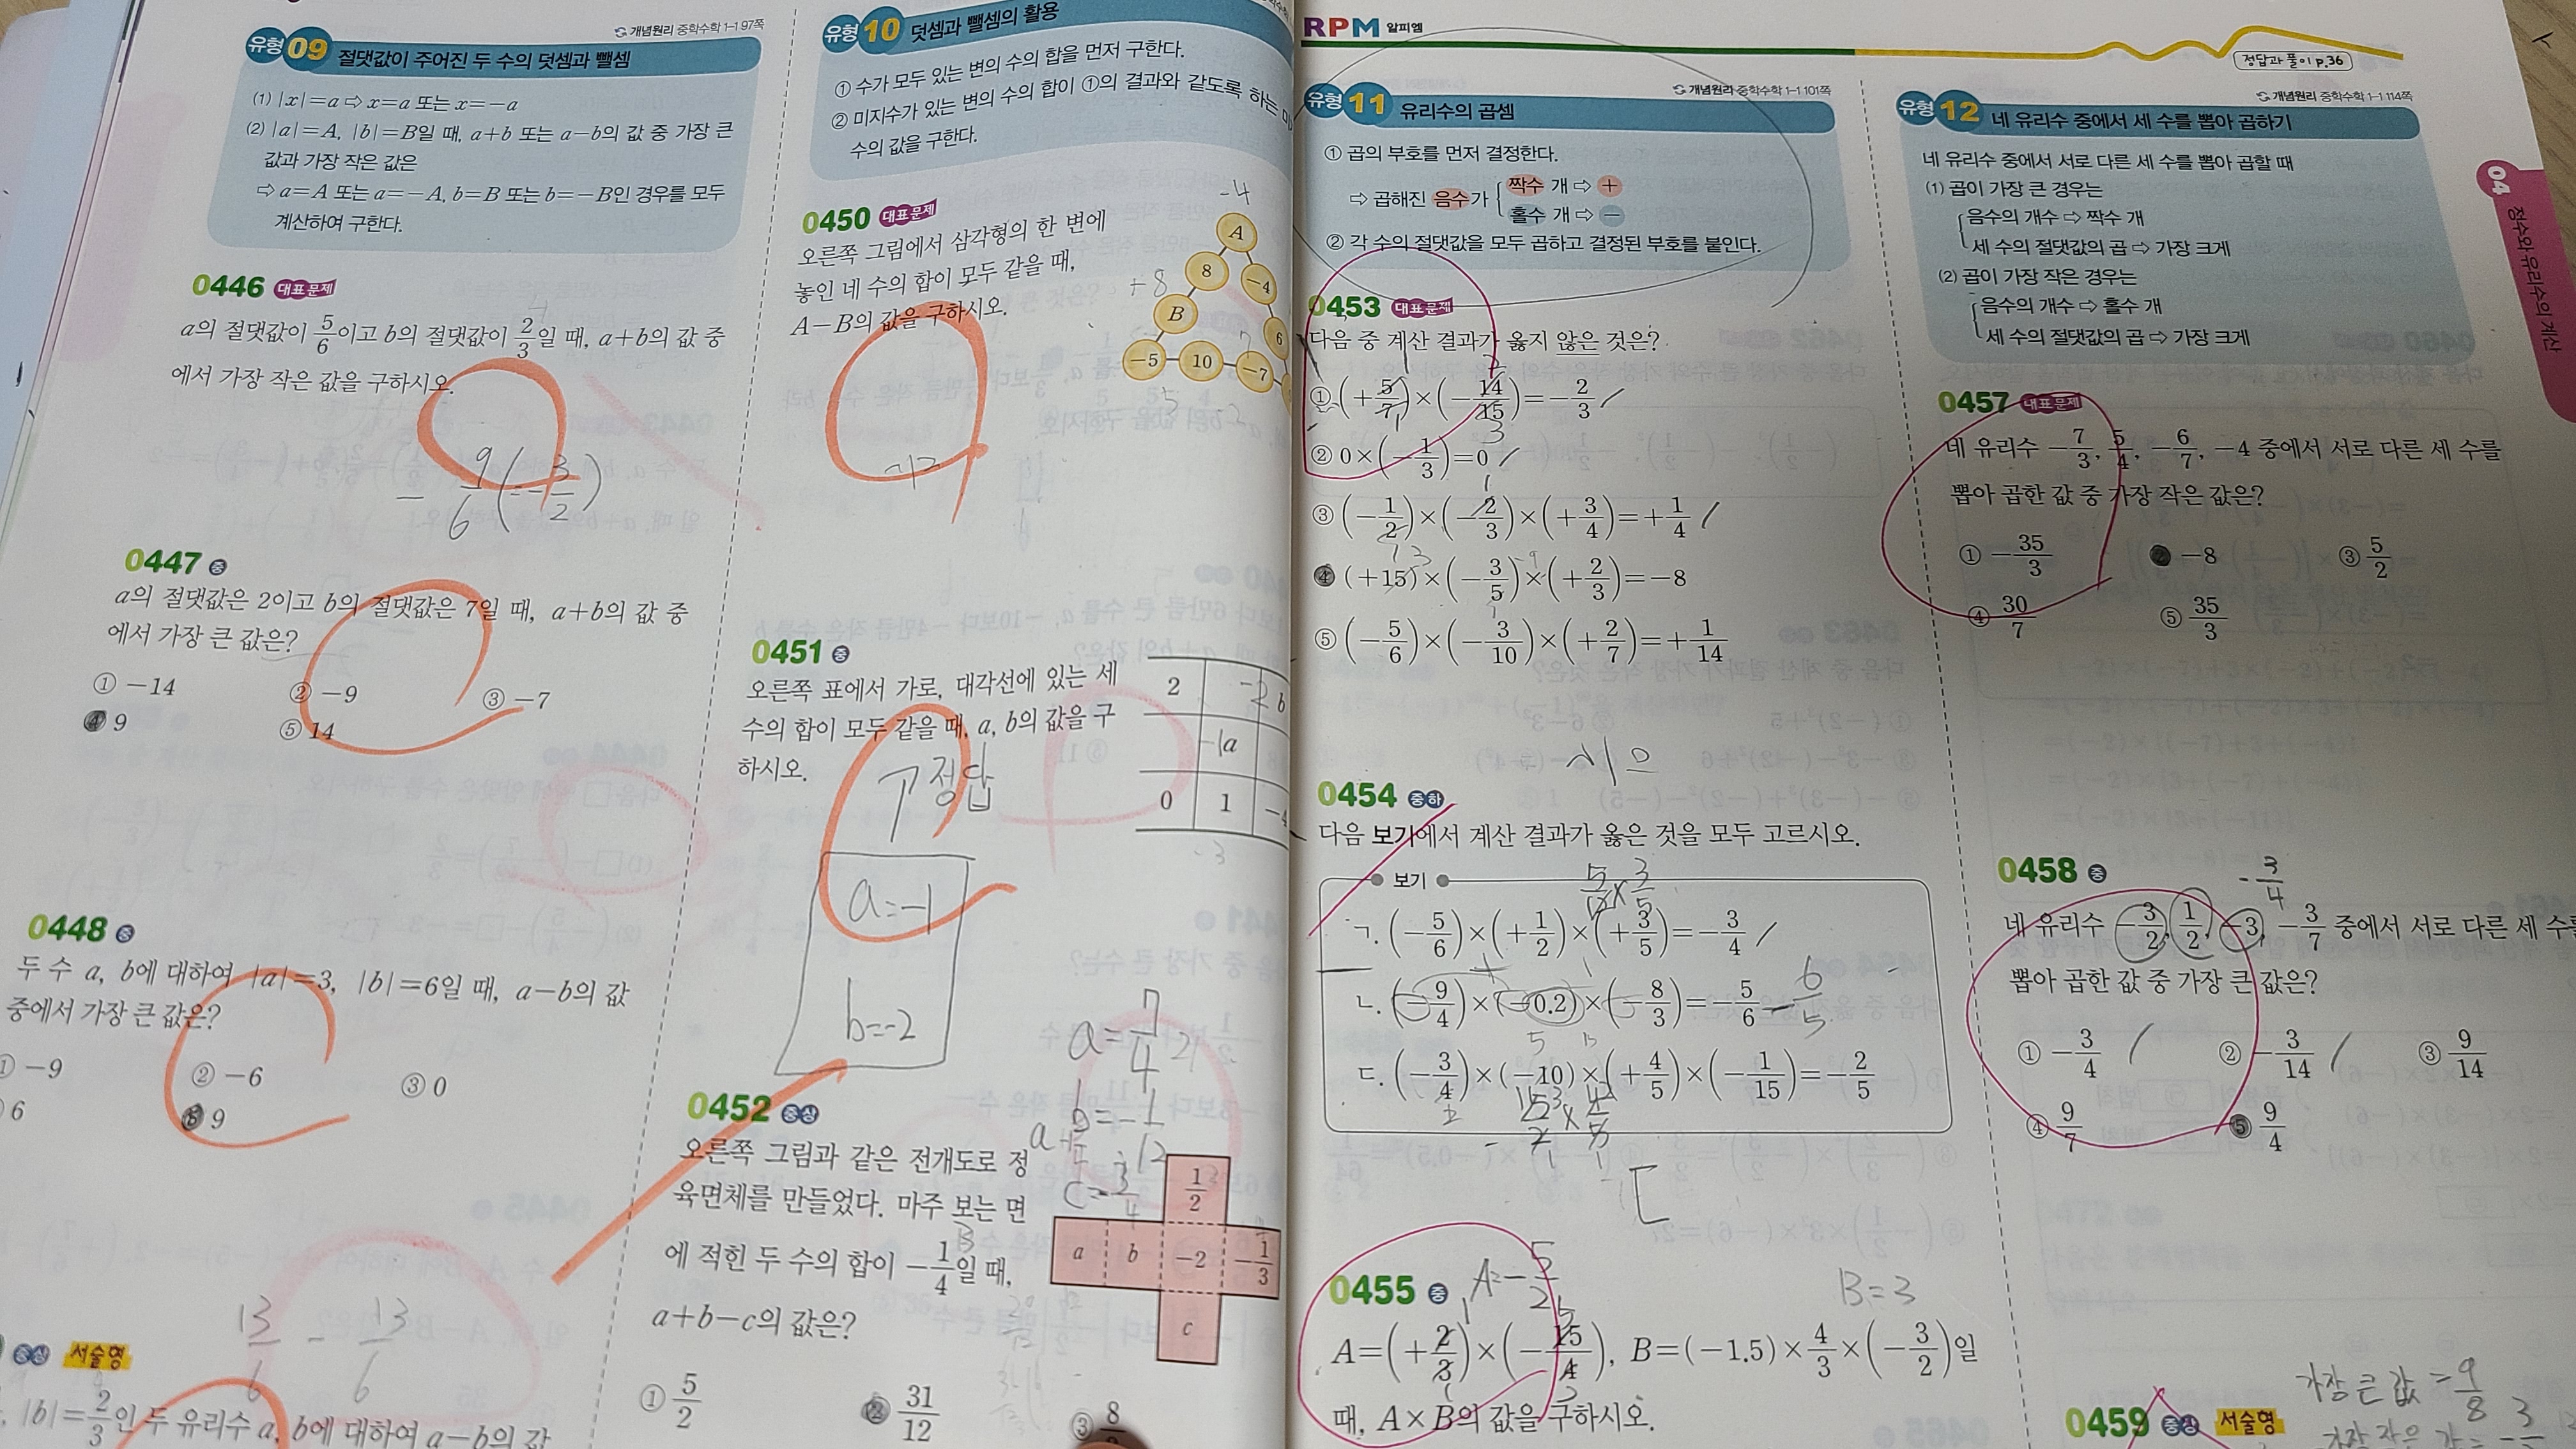 개념원리 중학수학 1-1 97쪽
유형 09 절댓값이 주어진 두 수의 덧셈과 뺄셈
(1) |x|=a ⇨ x=a 또는 x=-a
(2) |a|=A, |b|=B일 때, a+b 또는 a-b의 값 중 가장 큰
값과 가장 작은 값은
⇨ a=A 또는 a=-A, b=B 또는 b=-B인 경우를 모두
계산하여 구한다.
0446 대표문제
a의 절댓값이 5/6이고 b의 절댓값이 2/3일 때, a+b의 값 중
에서 가장 작은 값을 구하시오.
- 9/6 (=-3/2)
0447 중
a의 절댓값은 2이고 b의 절댓값은 7일 때, a+b의 값 중
에서 가장 큰 값은?
① -14 ② -9 ③ -7
④ 9 ⑤ 14
0448 중
두 수 a, b에 대하여 |a|=3, |b|=6일 때, a-b의 값
중에서 가장 큰 값은?
① -9 ② -6 ③ 0
6 ⑤ 9
13/6 - 13/6
중상 서술형
|b|=2/3인 두 유리수 a, b에 대하여 a-b의 값
유형 10 덧셈과 뺄셈의 활용
① 수가 모두 있는 변의 수의 합을 먼저 구한다.
② 미지수가 있는 변의 수의 합이 ①의 결과와 같도록 하는
수의 값을 구한다.
0450 대표문제
오른쪽 그림에서 삼각형의 한 변에
놓인 네 수의 합이 모두 같을 때,
A-B의 값을 구하시오.
-4
A
8 -4
+8
B 6
-5 10 -7
0451 중
오른쪽 표에서 가로, 대각선에 있는 세
수의 합이 모두 같을 때, a, b의 값을 구
하시오.
2 -2 b
-1 a
0 1 -4
-3
정답
a=-1
b=-2
0452 중상
오른쪽 그림과 같은 전개도로 정
육면체를 만들었다. 마주 보는 면
에 적힌 두 수의 합이 -1/4일 때,
a+b-c의 값은?
a=7/4
b=-1/12
c=-3/4
1/2
a b -2 -1/3
c
① 5/2 ② 31/12 ③ 8
RPM 알피엠
정답과 풀이 p.36
개념원리 중학수학 1-1 101쪽
유형 11 유리수의 곱셈
① 곱의 부호를 먼저 결정한다.
⇨ 곱해진 음수가 { 짝수 개 ⇨ +
홀수 개 ⇨ -
② 각 수의 절댓값을 모두 곱하고 결정된 부호를 붙인다.
0453 대표문제
다음 중 계산 결과가 옳지 않은 것은?
① (+5/7)×(-14/15)=-2/3
② 0×(-1/3)=0
③ (-1/2)×(-2/3)×(+3/4)=+1/4
④ (+15)×(-3/5)×(+2/3)=-8
⑤ (-5/6)×(-3/10)×(+2/7)=+1/14
0454 중하
다음 보기에서 계산 결과가 옳은 것을 모두 고르시오.
보기
ㄱ. (-5/6)×(+1/2)×(+3/5)=-3/4
ㄴ. (-9/4)×(-0.2)×(-8/3)=-5/6 -6/5
ㄷ. (-3/4)×(-10)×(+4/5)×(-1/15)=-2/5
ㄷ
0455 중
A=-5/2
B=3
A=(+2/3)×(-15/4), B=(-1.5)×4/3×(-3/2)일
때, A×B의 값을 구하시오.
개념원리 중학수학 1-1 114쪽
유형 12 네 유리수 중에서 세 수를 뽑아 곱하기
네 유리수 중에서 서로 다른 세 수를 뽑아 곱할 때
(1) 곱이 가장 큰 경우는
음수의 개수 ⇨ 짝수 개
세 수의 절댓값의 곱 ⇨ 가장 크게
(2) 곱이 가장 작은 경우는
음수의 개수 ⇨ 홀수 개
세 수의 절댓값의 곱 ⇨ 가장 크게
04 정수와 유리수의 계산
0457 대표문제
네 유리수 -7/3, 5/4, -6/7, -4 중에서 서로 다른 세 수를
뽑아 곱한 값 중 가장 작은 값은?
① -35/3 -8 ③ 5/2
④ 30/7 ⑤ 35/3
0458 중
-3/4
네 유리수 -3/2, 1/2, -3, -3/7 중에서 서로 다른 세 수를
뽑아 곱한 값 중 가장 큰 값은?
① -3/4 ② -3/14 ③ 9/14
④ 9/7 ⑤ 9/4
가장 큰 값=9/8
0459 중상 서술형